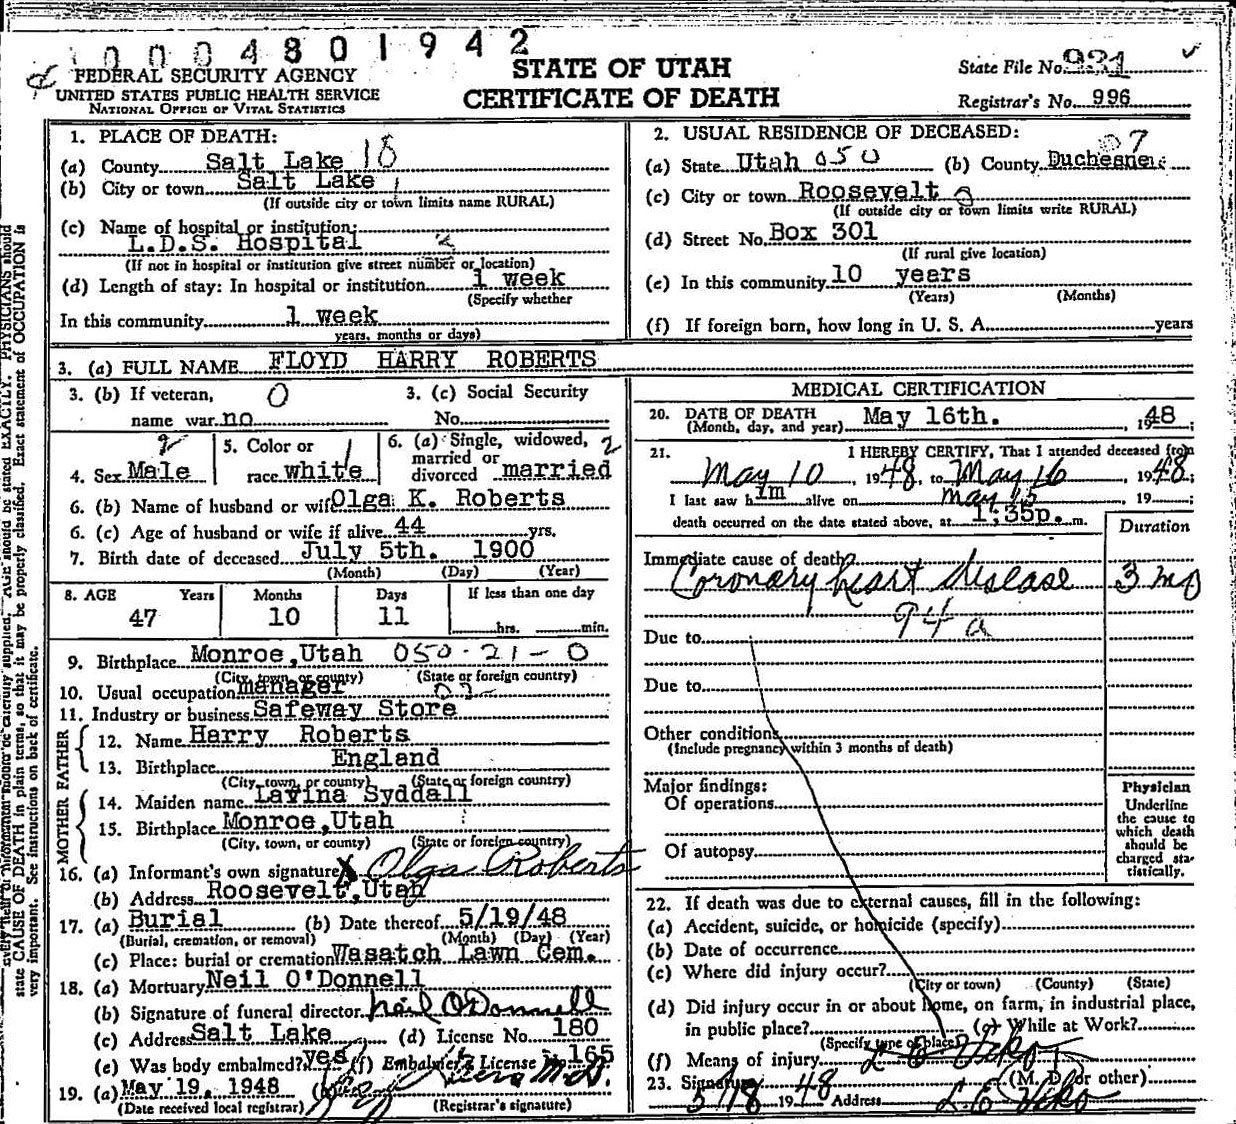 0 0 0 4 8 0 1 9 4 2
FEDERAL SECURITY AGENCY
UNITED STATES PUBLIC HEALTH SERVICE
NATIONAL OFFICE OF VITAL STATISTICS
STATE OF UTAH
CERTIFICATE OF DEATH
State File No. 931
Registrar's No. 996
1. PLACE OF DEATH:
(a) County Salt Lake 18
(b) City or town Salt Lake 1
(If outside city or town limits name RURAL)
(c) Name of hospital or institution:
L.D.S. Hospital 2
(If not in hospital or institution give street number or location)
(d) Length of stay: In hospital or institution 1 week
(Specify whether
In this community 1 week
years, months or days)
2. USUAL RESIDENCE OF DECEASED:
07
(a) State Utah 050 (b) County Duchesne
(c) City or town Roosevelt
(If outside city or town limits write RURAL)
(d) Street No. Box 301
(If rural give location)
(e) In this community 10 years
(Years) (Months)
(f) If foreign born, how long in U. S. A. years
3. (a) FULL NAME FLOYD HARRY ROBERTS
3. (b) If veteran, 0
name war no
3. (c) Social Security
No.
4. Sex Male
5. Color or 1
race white
6. (a) Single, widowed, 2
married or
divorced married
6. (b) Name of husband or wife Olga K. Roberts
6. (c) Age of husband or wife if alive 44 yrs.
7. Birth date of deceased July 5th. 1900
(Month) (Day) (Year)
8. AGE Years Months Days If less than one day
47 10 11 hrs. min.
9. Birthplace Monroe,Utah 050-21-0
(City, town, or county) (State or foreign country)
10. Usual occupation manager
11. Industry or business Safeway Store
FATHER
12. Name Harry Roberts
13. Birthplace England
(City, town, or county) (State or foreign country)
MOTHER
14. Maiden name Lavina Syddall
15. Birthplace Monroe,Utah
(City, town, or county) (State or foreign country)
16. (a) Informant's own signature X Olga Roberts
(b) Address Roosevelt,Utah
17. (a) Burial (b) Date thereof 5/19/48
(Burial, cremation, or removal) (Month) (Day) (Year)
(c) Place: burial or cremation Wasatch Lawn Cem.
18. (a) Mortuary Neil O'Donnell
(b) Signature of funeral director Neil O'Donnell
(c) Address Salt Lake (d) License No. 180
(e) Was body embalmed? yes (f) Embalmer's License 165
19. (a) May 19, 1948 (b) M.D.
(Date received local registrar) (Registrar's signature)
MEDICAL CERTIFICATION
20. DATE OF DEATH May 16th. , 1948;
(Month, day, and year)
21. I HEREBY CERTIFY, That I attended deceased from
May 10 , 1948, to May 16 , 1948;
I last saw him alive on May 15 , 19 ;
death occurred on the date stated above, at 1:35p. m.
Duration
Immediate cause of death
Coronary heart disease 3 mo
94a
Due to
Due to
Other conditions
(Include pregnancy within 3 months of death)
Major findings:
Of operations
Of autopsy
Physician
Underline
the cause to
which death
should be
charged sta-
tistically.
22. If death was due to external causes, fill in the following:
(a) Accident, suicide, or homicide (specify)
(b) Date of occurrence
(c) Where did injury occur?
(City or town) (County) (State)
(d) Did injury occur in or about home, on farm, in industrial place,
in public place? (g) While at Work?
(Specify type of place)
(f) Means of injury
23. Signature (M. D. or other)
5/18 1948 Address
state CAUSE OF DEATH in plain terms, so that it may be properly classified. Exact statement of OCCUPATION is
very important. See instructions on back of certificate.